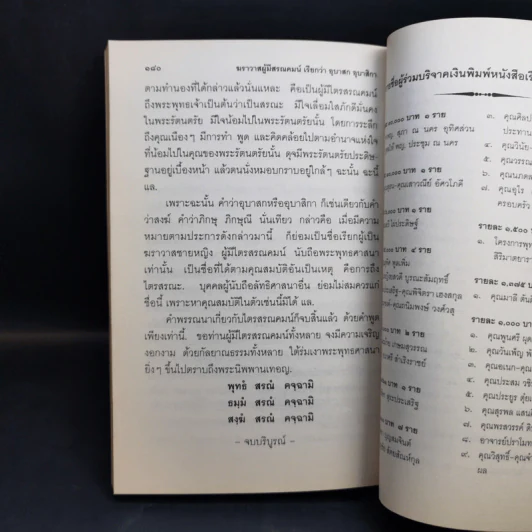 ๑๘๐ ฆราวาสผู้มีสรณคมน์ เรียกว่า อุบาสก อุบาสิกา
ตามทำนองที่ได้กล่าวแล้วนั่นแหละ คือเป็นผู้มีไตรสรณคมน์
ถึงพระพุทธเจ้าเป็นต้นว่าเป็นสรณะ มีใจเลื่อมใสภักดีมั่นคง
ในพระรัตนตรัย มีใจน้อมไปในพระรัตนตรัยนั้น โดยการระลึก
ถึงคุณเนืองๆ มีการทำ พูด และคิดคล้อยไปตามอำนาจแห่งใจ
ที่น้อมไปในคุณของพระรัตนตรัยนั้น ดุจมีพระรัตนตรัยประดิษ-
ฐานอยู่เบื้องหน้า แล้วตนนั่งหมอบกราบอยู่ใกล้ๆ ฉะนั้น ฉะนี้
แล.
เพราะฉะนั้น คำว่าอุบาสกหรืออุบาสิกา ก็เช่นเดียวกับคำ
ว่าสงฆ์ คำว่าภิกษุ ภิกษุณี นั่นเทียว กล่าวคือ เมื่อมีความ
หมายตามประการดังกล่าวมานี้ ก็ย่อมเป็นชื่อเรียกผู้เป็น
ฆราวาสชายหญิง ผู้มีไตรสรณคมน์ นับถือพระพุทธศาสนา
เท่านั้น เป็นชื่อที่ได้ตามคุณสมบัติอันเป็นเหตุ คือการถึง
ไตรสรณะ. บุคคลผู้นับถือลัทธิศาสนาอื่น ย่อมไม่สมควรแก่
ชื่อนี้ เพราะหาคุณสมบัติในตัวเช่นนี้มิได้ แล.
คำพรรณนาเกี่ยวกับไตรสรณคมน์ก็จบสิ้นแล้ว ด้วยคำพูด
เพียงเท่านี้. ขอท่านผู้มีไตรสรณคมน์ทั้งหลาย จงมีความเจริญ
งอกงาม ด้วยกัลยาณธรรมทั้งหลาย ใต้ร่มเงาพระพุทธศาสนา
ยิ่งๆ ขึ้นไปตราบถึงพระนิพพานเทอญ.
พุทฺธํ สรณํ คจฺฉามิ
ธมฺมํ สรณํ คจฺฉามิ
สงฺฆํ สรณํ คจฺฉามิ
- จบบริบูรณ์ -
ชื่อผู้ร่วมบริจาคเงินพิมพ์หนังสือเรื่
บาท ๑ ราย
สุภา ณ นคร อุทิศส่วน
ประชุม ณ นคร
บาท ๑ ราย
คุณเสาวณีย์ อัศวโภคี
บาท ๑ ราย
ไม่ประดิษฐ์
บาท ๔ ราย
พุฒเพิ่ม
บูรณะสัมฤทธิ์
คุณพิจิตรา เฮงสกุล
บาท ๒ ราย
สำเริงราชย์
บาท ๑ ราย
บาท ๗ ราย
๓. คุณศิลป
ประทาน
๔. คุณวินัย-
๕. คุณวรรณ
๖. คุณนภดล
๗. คุณอุไร
ครอบครัว
รายละ ๑,๕๐๐
๑. โครงการพุท
สิริมาตยารา
รายละ ๑,๓๗๕ บาท
๑. คุณมาลี ตัน
รายละ ๑,๐๐๐ บาท
๑. คุณพูนศรี ผุด
๒. คุณวันเพ็ญ พั
๓. คุณอเนก-คุณ
๔. คุณประสม วชิ
๕. คุณประยูร ตุ่ย
๖. คุณสุรพล แสน
๗. คุณพรสวรรค์ ติ
๘. อาจารย์ปราโมท
๙. คุณวิสุทธิ์-คุณจำ
ผล